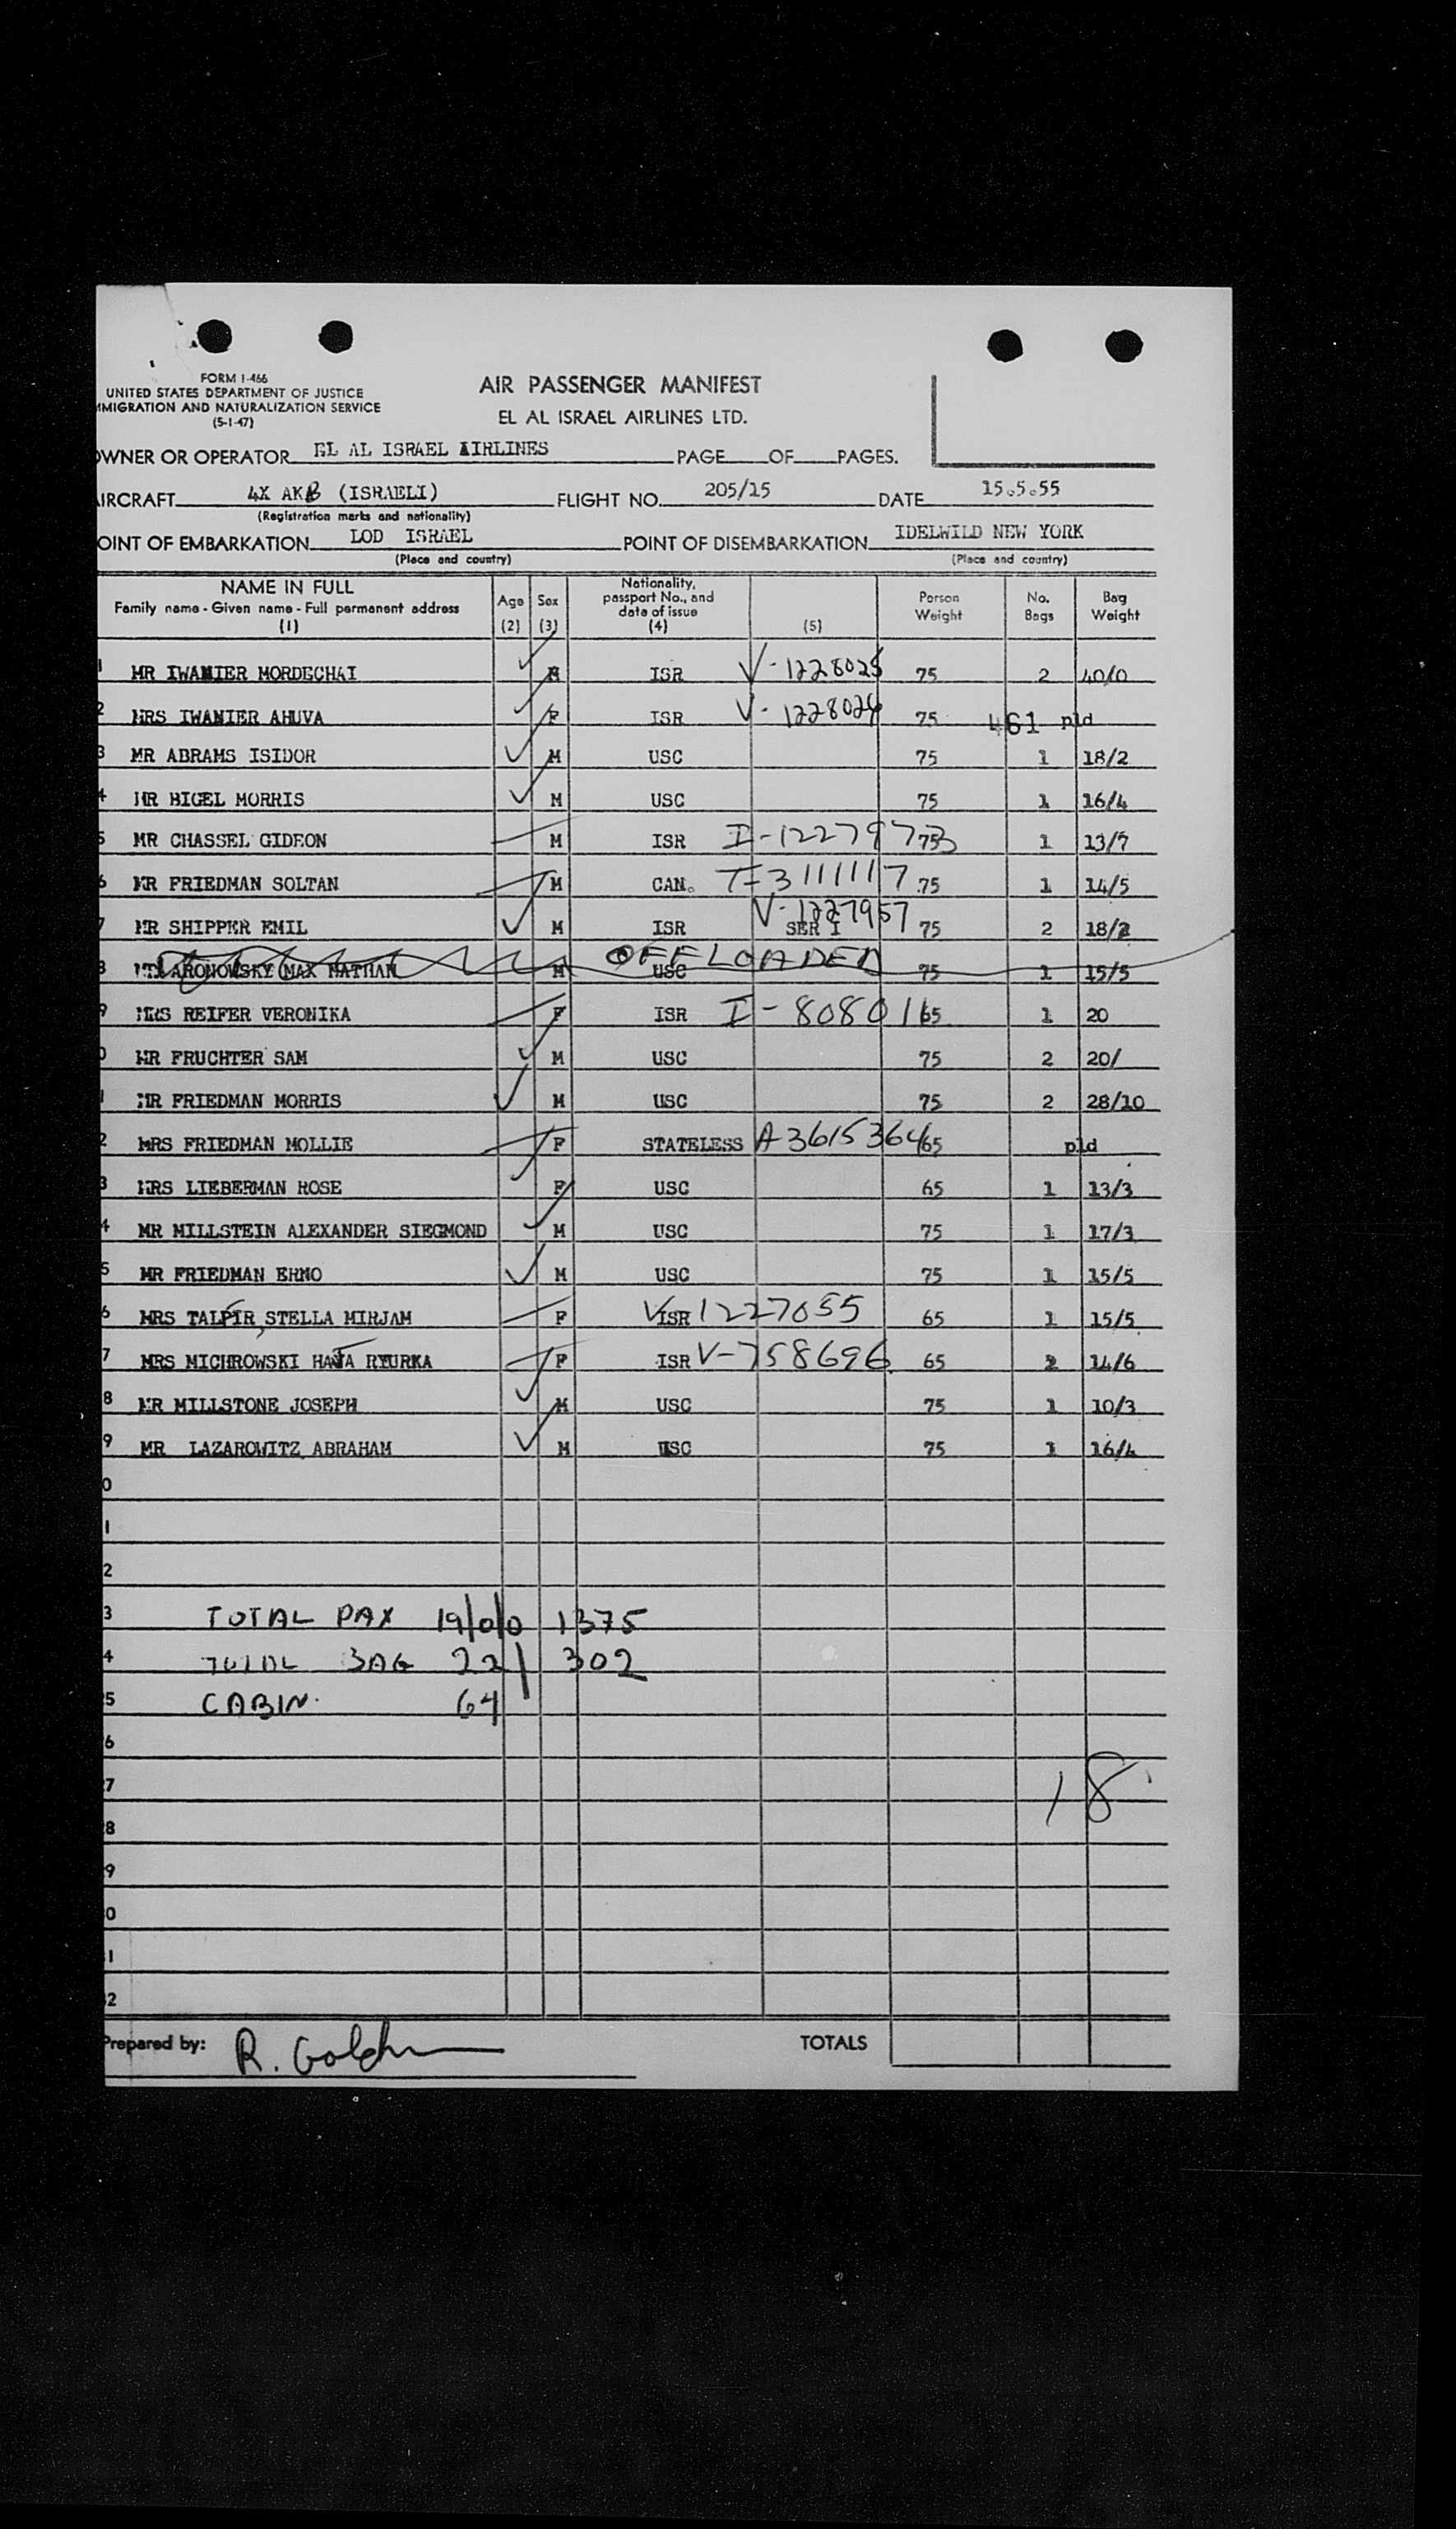 FORM I-466
UNITED STATES DEPARTMENT OF JUSTICE
MMIGRATION AND NATURALIZATION SERVICE
(5-1-47)
AIR PASSENGER MANIFEST
EL AL ISRAEL AIRLINES LTD.
OWNER OR OPERATOR EL AL ISRAEL AIRLINES PAGE OF PAGES.
IRCRAFT 4X AKB (ISRAELI) FLIGHT NO. 205/15 DATE 15.5.55
(Registration marks and nationality)
OINT OF EMBARKATION LOD ISRAEL POINT OF DISEMBARKATION IDELWILD NEW YORK
(Place and country) (Place and country)
NAME IN FULL Family name - Given name - Full permanent address (1) Age (2) Sex (3) Nationality, passport No., and date of issue (4) (5) Person Weight No. Bags Bag Weight
1 MR IWANIER MORDECHAI M ISR V-1228025 75 2 40/0
2 MRS IWANIER AHUVA F ISR V-1228024 75 461 pld
3 MR ABRAMS ISIDOR M USC 75 1 18/2
4 MR BIGEL MORRIS M USC 75 1 16/4
5 MR CHASSEL GIDEON M ISR I-1227973 75 1 13/7
6 MR FRIEDMAN SOLTAN M CAN. T-3111117 75 1 14/5
7 MR SHIPPER EMIL M ISR V-1227957 SER I 75 2 18/2
8 ARONOWSKY MAX NATHAN M USC OFFLOADED 75 1 15/5
9 MRS REIFER VERONIKA F ISR I-808016 65 1 20
0 MR FRUCHTER SAM M USC 75 2 20/
1 MR FRIEDMAN MORRIS M USC 75 2 28/10
2 MRS FRIEDMAN MOLLIE F STATELESS A-3615364 65 pld
3 MRS LIEBERMAN ROSE F USC 65 1 13/3
4 MR MILLSTEIN ALEXANDER SIEGMOND M USC 75 1 17/3
5 MR FRIEDMAN ERNO M USC 75 1 15/5
6 MRS TALPIR, STELLA MIRJAM F ISR V 1227055 65 1 15/5
7 MRS MICHROWSKI HAJA RYURKA F ISR V-758696 65 2 14/6
8 MR MILLSTONE JOSEPH M USC 75 1 10/3
9 MR LAZAROWITZ ABRAHAM M USC 75 1 16/4
0
1
2
3 TOTAL PAX 19/0/0 1375
4 TOTAL BAG 22/ 302
5 CABIN. 64
6
7 18
8
9
0
1
2
Prepared by: R. TOTALS